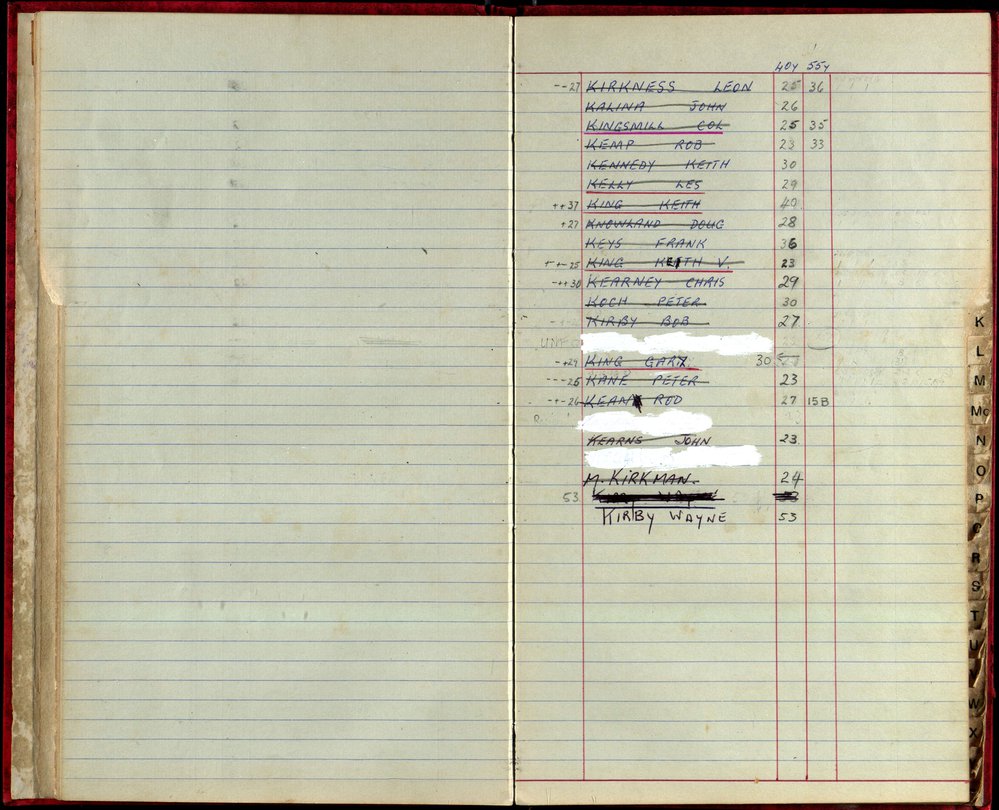 40Y 55Y
--27 KIRKNESS LEON 25 36
KALINA JOHN 26
KINGSMILL COL 25 35
KEMP ROB 23 33
KENNEDY KEITH 30
KELLY LES 29
++37 KING KEITH 40
+27 KNOWLAND DOUG 28
KEYS FRANK 36
++-25 KING KEITH V. 23
-++30 KEARNEY CHRIS 29
KOCH PETER 30
KIRBY BOB 27
-+29 KING GARY 30
---25 KANE PETER 23
-+-26 KEAN ROD 27 15B
KEARNS JOHN 23
M. KIRKMAN. 24
53
KIRBY WAYNE 53
K
L
M
Mc
N
O
P
R
S
T
U
W
X